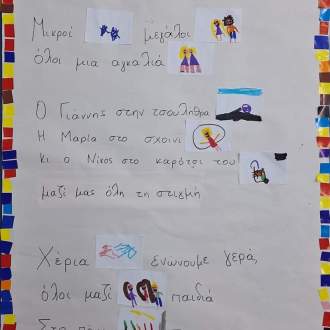 Μικροί μεγάλοι
όλοι μια αγκαλιά
Ο Γιάννης στην τσουλήθρα
Η Μαρία στο σχοινί
κι ο Νίκος στο καρότσι του
μαζί μας όλη τη στιγμή
Χέρια ενώνουμε γερά,
όλοι μαζί παιδιά